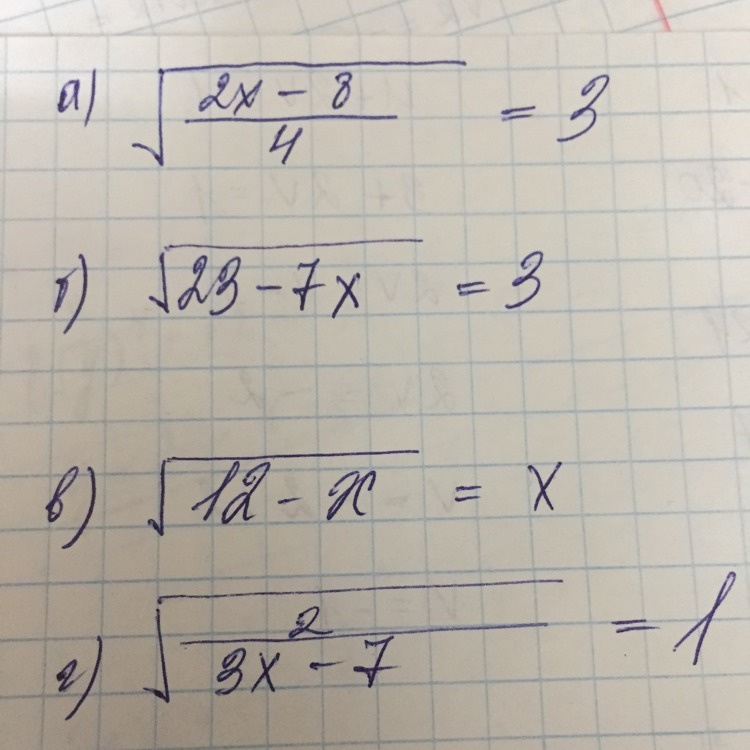 а) √((2x − 8)/4) = 3
б) √(23 − 7x) = 3
в) √(12 − x) = x
г) √(2/(3x − 7)) = 1